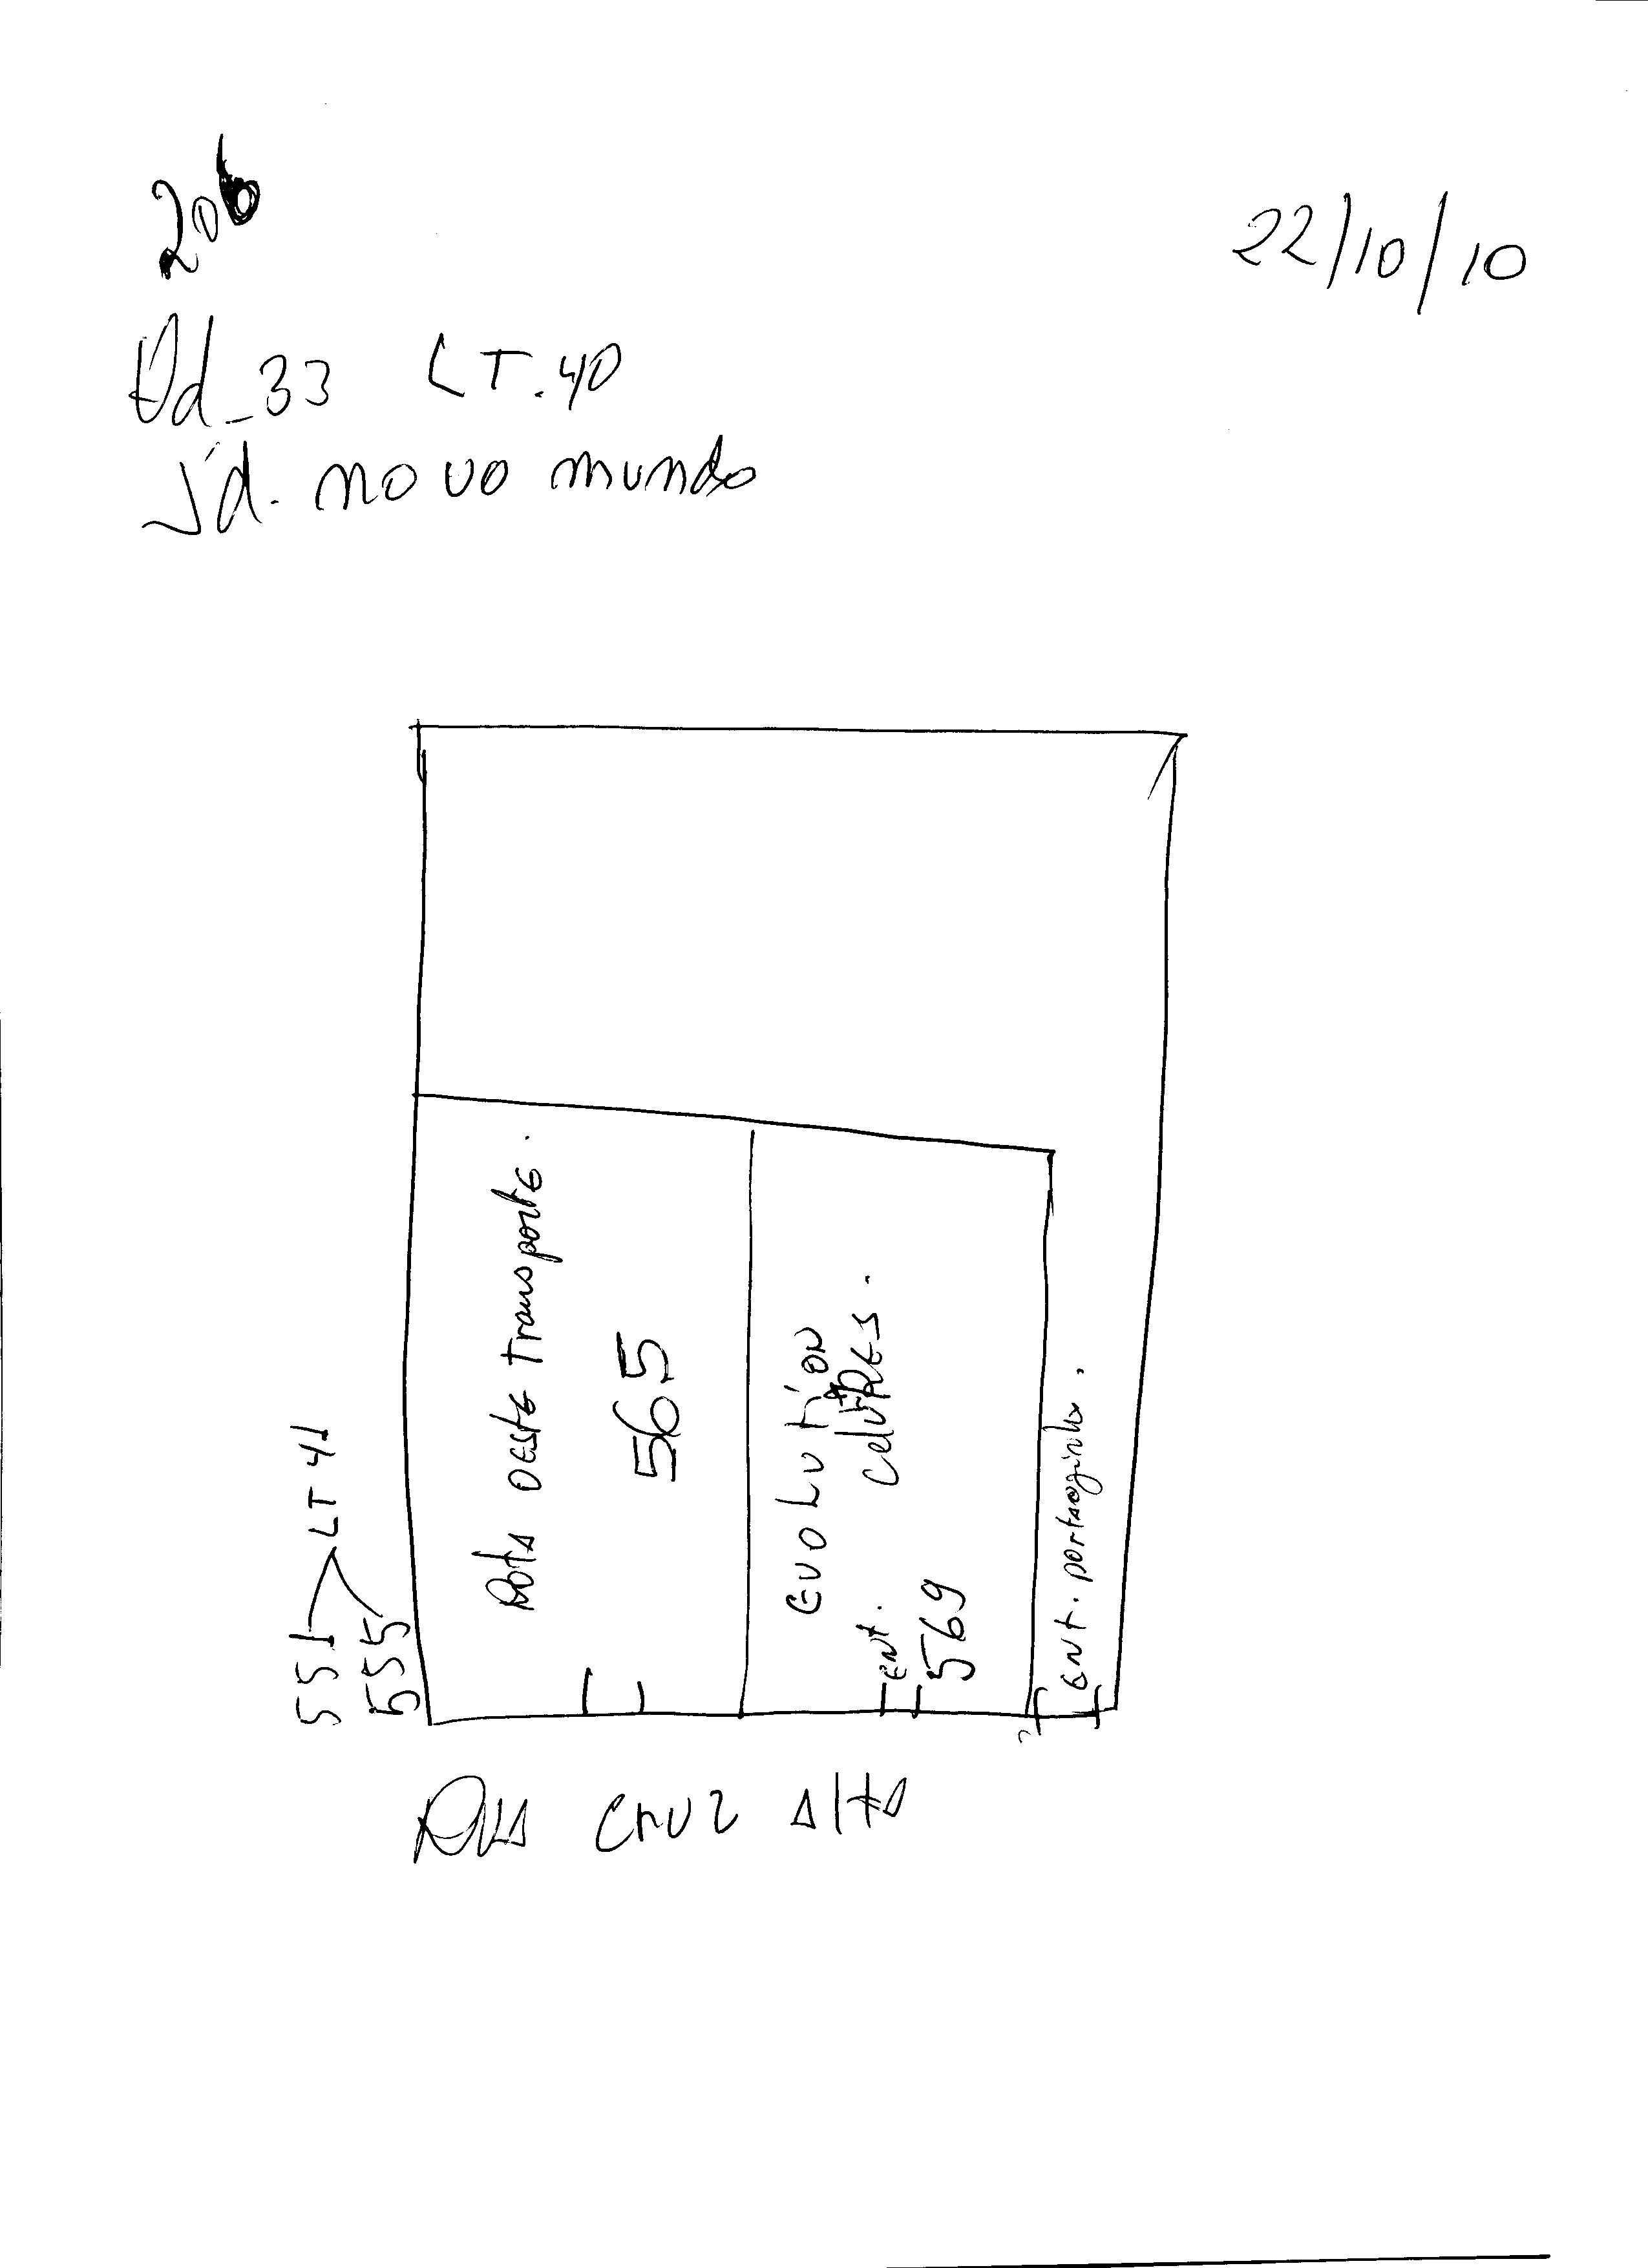 206
22/10/10
Qd_33 LT.40
Jd. novo mundo
Rota oeste transporte.
565
Evolution
celulares.
ent.
569
ent. portaozinho.
551
555
LT 41
Rua Cruz Alta